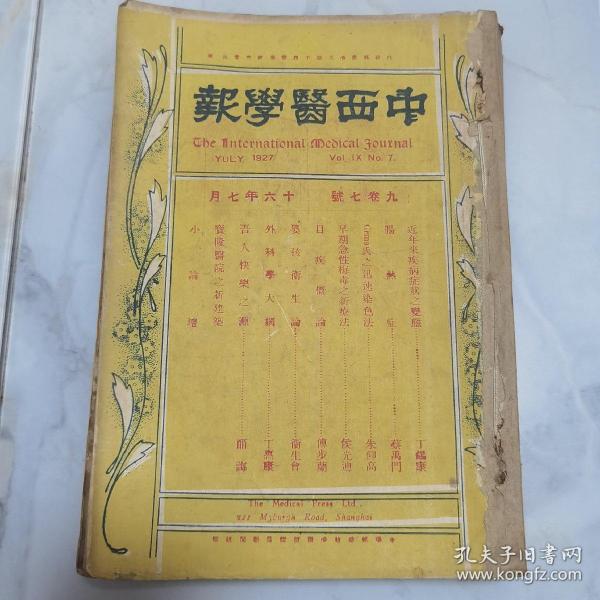 中西醫學報
The International Medical Journal
YULY 1927 Vol IX No. 7.
九卷七號 十六年七月
近年來疾病症狀之變態 丁錫康
腸熱症 蔡禹門
Gram氏之迅速染色法 朱仰高
早期急性梅毒之新療法 侯光迪
日疾概論 傅步蘭
嬰孩衛生論 衞生會
外科學大綱 丁惠康
吾人快樂之源 邵
寶隆醫院之新建築
小論壇
The Medical Press Ltd.
Myburgh Road, Shanghai
孔夫子旧书网
www.kongfz.com